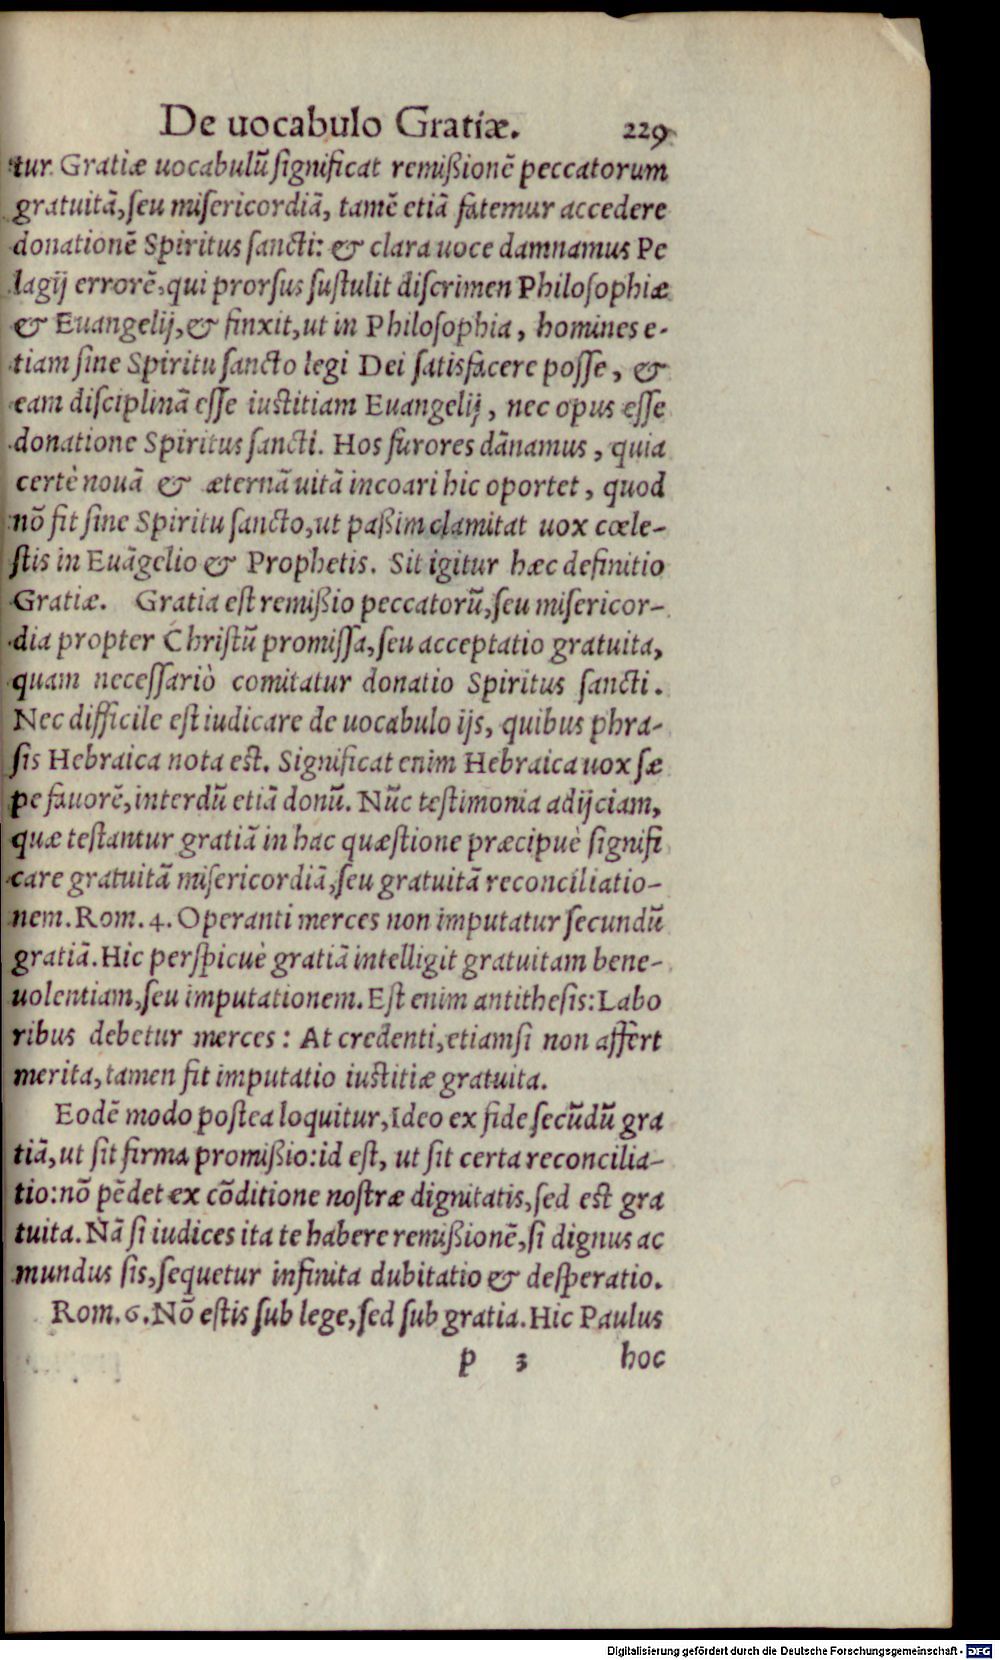 De uocabulo Gratiæ. 229
tur. Gratiæ uocabulũ ſignificat remißionẽ peccatorum
gratuitã, ſeu miſericordiã, tamẽ etiã fatemur accedere
donationẽ Spiritus ſancti: & clara uoce damnamus Pe
lagij errorẽ, qui prorſus ſuſtulit diſcrimen Philoſophiæ
& Euangelij, & finxit, ut in Philoſophia, homines e-
tiam ſine Spiritu ſancto legi Dei ſatisfacere poſſe, &
eam diſciplinã eſſe iuſtitiam Euangelij, nec opus eſſe
donatione Spiritus ſancti. Hos furores dãnamus, quia
certè nouã & æternã uitã incoari hic oportet, quod
nõ fit ſine Spiritu ſancto, ut paßim clamitat uox cœle-
ſtis in Euãgelio & Prophetis. Sit igitur hæc definitio
Gratiæ. Gratia eſt remißio peccatorũ, ſeu miſericor-
dia propter Chriſtũ promiſſa, ſeu acceptatio gratuita,
quam neceſſariò comitatur donatio Spiritus ſancti.
Nec difficile eſt iudicare de uocabulo ijs, quibus phra-
ſis Hebraica nota eſt. Significat enim Hebraica uox ſæ
pe fauorẽ, interdũ etiã donũ. Nũc teſtimonia adijciam,
quæ teſtantur gratiã in hac quæſtione præcipuè ſignifi
care gratuitã miſericordiã, ſeu gratuitã reconciliatio-
nem. Rom. 4. Operanti merces non imputatur ſecundũ
gratiã. Hic perſpicuè gratiã intelligit gratuitam bene-
uolentiam, ſeu imputationem. Eſt enim antitheſis: Labo
ribus debetur merces: At credenti, etiamſi non affert
merita, tamen fit imputatio iuſtitiæ gratuita.
Eodẽ modo poſtea loquitur, Ideo ex fide ſecũdũ gra
tiã, ut ſit firma promißio: id eſt, ut ſit certa reconcilia-
tio: nõ pẽdet ex cõditione noſtræ dignitatis, ſed eſt gra
tuita. Nã ſi iudices ita te habere remißionẽ, ſi dignus ac
mundus ſis, ſequetur infinita dubitatio & deſperatio.
Rom. 6. Nõ eſtis ſub lege, ſed ſub gratia. Hic Paulus
p 3 hoc
Digitalisierung gefördert durch die Deutsche Forschungsgemeinschaft - DFG